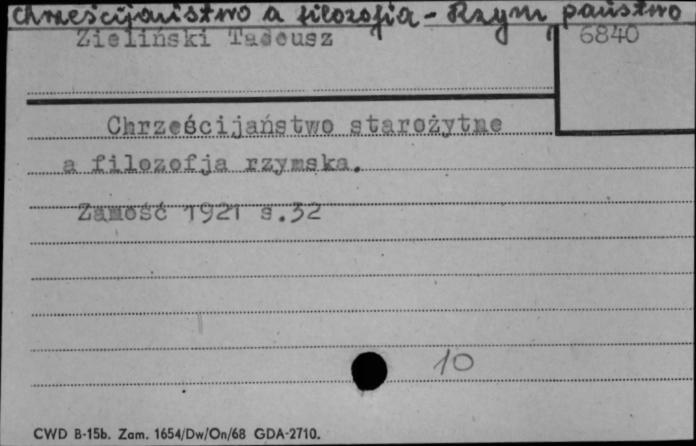 Chrześcijaństwo a filozofia - Rzym, państwo
Zieliński Tadeusz
6840
Chrześcijaństwo starożytne
a filozofja rzymska.
Zamość 1921 s.32
10
CWD B-15b. Zam. 1654/Dw/On/68 GDA-2710.